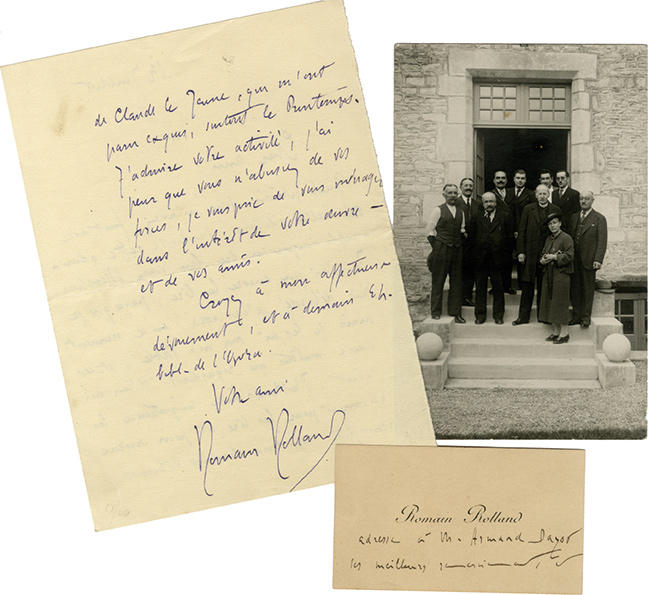 de Claude le Jeune, qui m'ont
paru exquis, surtout le Printemps.
J'admire votre activité, j'ai
peur que vous n'abusiez de vos
forces, je vous prie de vous ménager
dans l'intérêt de votre œuvre —
et de vos amis.
Croyez à mon affectueux
dévouement, et à demain
bibl. de l'Opéra.
Votre ami
Romain Rolland
Romain Rolland
adresse à M. Armand Dayot
ses meilleurs